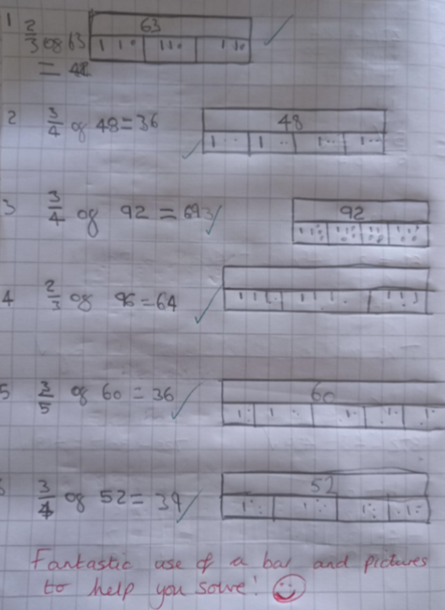 1 2/3 of 63 63
= 42
2 3/4 of 48 = 36 48
3 3/4 of 92 = 69 92
4 2/3 of 96 = 64
5 3/5 of 60 = 36 60
3/4 of 52 = 39 52
Fantastic use of a bar and pictures
to help you solve!